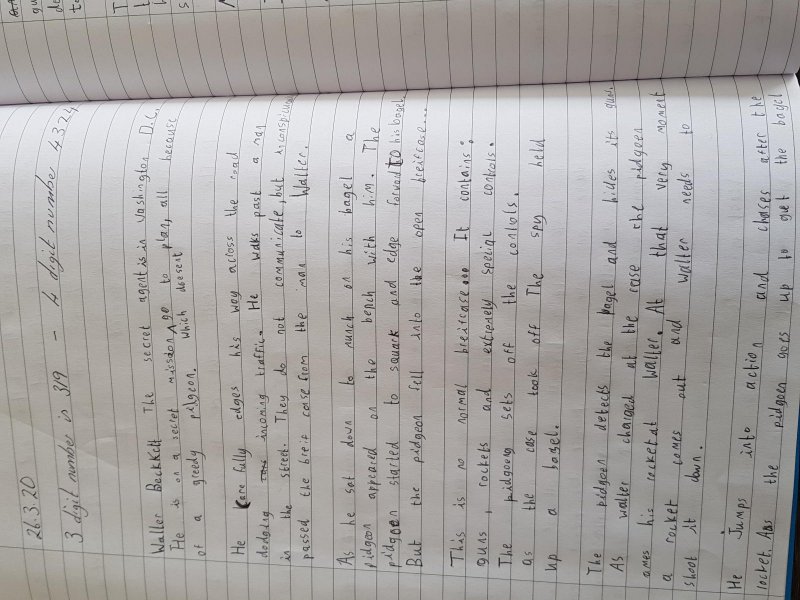 26.3.20
3 digit number is 319 - 4 digit number 4324
Walter Beckkitt The secret agent is in Washington D.C.
He is on a secret mission Age to plan, all because
of a greedy pidgeon. which doesent
He carefully edges his way across the road
dodging incoming traffic. He walks past a man
in the street. They do not communicate, but inconspicuou
passed the breif case from the man to Walter.
As he sat down to munch on his bagel a
pidgeon appeared on the bench with him. The
pidgeon started to squark and edge forward to his bagel
But the pidgeon fell into the open breifcase...
This is no normal breifcase... It contains:
guns, rockets and extremely special controls.
The pidgeong sets off the contols.
as the case took off The spy held
up a bagel.
The pidgeon detects the bagel and hides its guns
As walter charged at the case the pidgeon
ames his rocket at Walter. At that very moment
a rocket comes out and walter needs to
shoot it down.
He Jumps into action and chases after the
rocket. As the pidgoen goes up to get the bagel